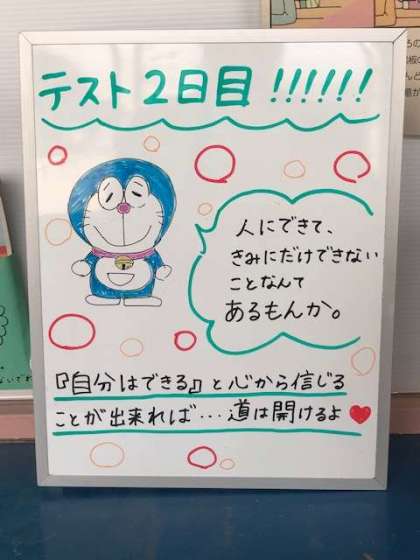 テスト2日目!!!!!!
人にできて、
きみにだけできない
ことなんて
あるもんか。
『自分はできる』と心から信じる
ことが出来れば…道は開けるよ♥